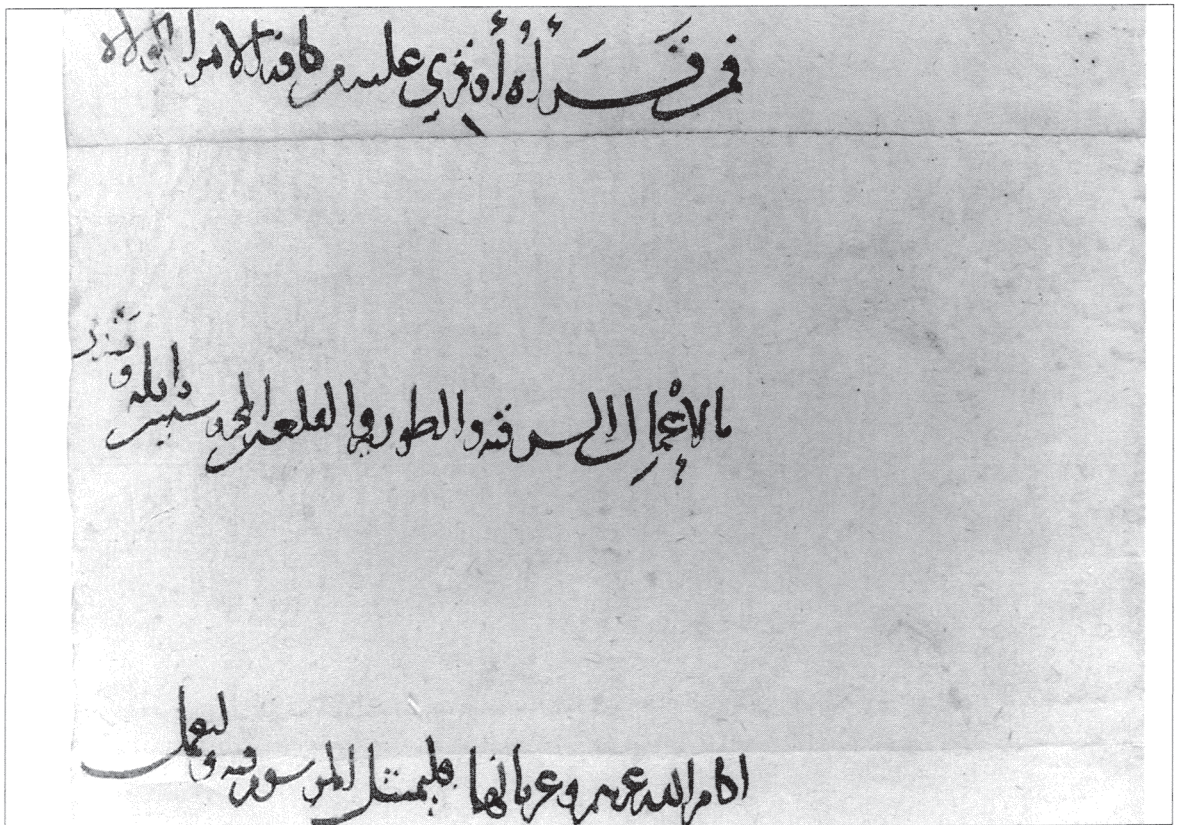 فمن قَرَأَهُ أَو قري عليه من كافة الامرا الولاه
بالأعمال الشرقية والطور والقلعتين المحروستين بايله وصدر
ادام الله عزهم وعربانها فليمتثل المرسوم فيه وليعمل